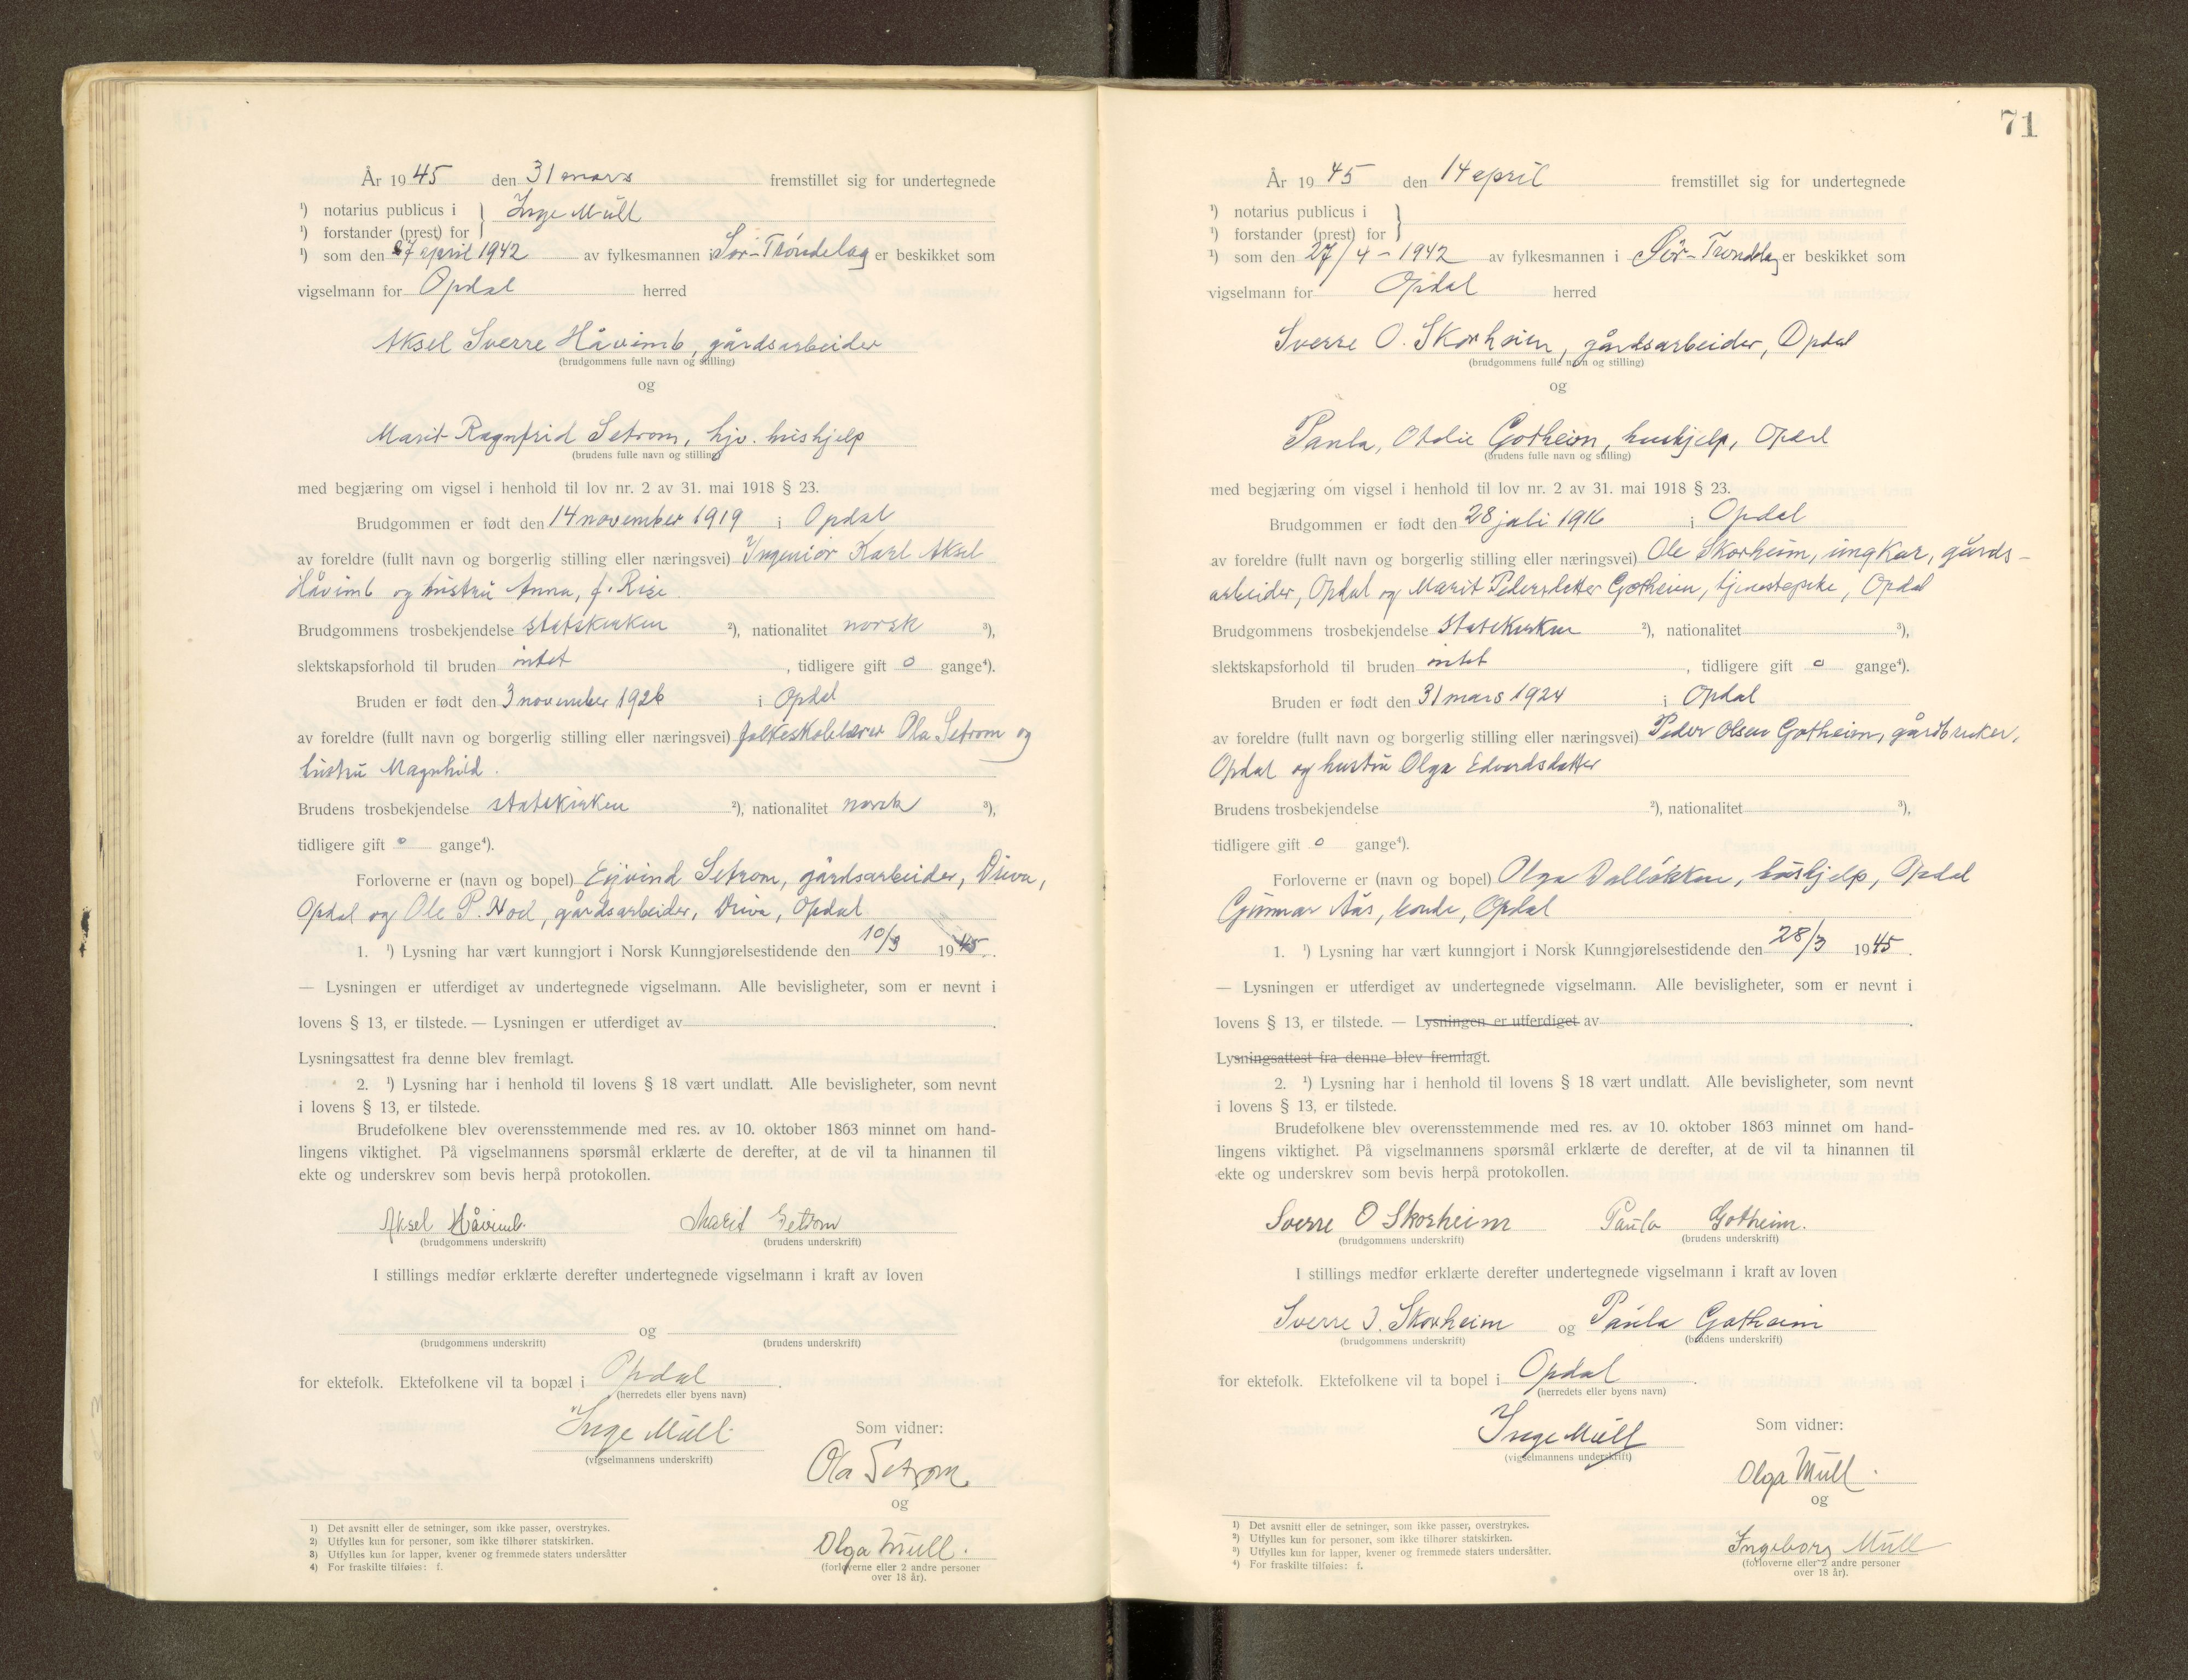 År 1945 den 31 mars fremstillet sig for undertegnede
¹) notarius publicus i } Inge Müll
¹) forstander (prest) for
¹) som den 27 april 1942 av fylkesmannen i Sør-Trøndelag er beskikket som
vigselmann for Opdal herred
Aksel Sverre Håvimb, gårdsarbeider
(brudgommens fulle navn og stilling)
og
Marit Ragnfrid Setrom, hjv. hushjelp
(brudens fulle navn og stilling)
med begjæring om vigsel i henhold til lov nr. 2 av 31. mai 1918 § 23.
Brudgommen er født den 14 november 1919 i Opdal
av foreldre (fullt navn og borgerlig stilling eller næringsvei) Ingeniør Karl Aksel
Håvimb og hustru Anna, f. Rise.
Brudgommens trosbekjendelse statskirken ²), nationalitet norsk ³),
slektskapsforhold til bruden intet, tidligere gift 0 gange⁴).
Bruden er født den 3 november 1926 i Opdal
av foreldre (fullt navn og borgerlig stilling eller næringsvei) folkeskolelærer Ola Setrom og
hustru Magnhild.
Brudens trosbekjendelse statskirken ²), nationalitet norsk ³),
tidligere gift 0 gange⁴).
Forloverne er (navn og bopel) Eyvind Setrom, gårdsarbeider, Driva,
Opdal og Ole P. Hoel, gårdsarbeider, Driva, Opdal
1. ¹) Lysning har vært kunngjort i Norsk Kunngjørelsestidende den 10/3 1945.
— Lysningen er utferdiget av undertegnede vigselmann. Alle bevisligheter, som er nevnt i
lovens § 13, er tilstede. — Lysningen er utferdiget av .
Lysningsattest fra denne blev fremlagt.
2. ¹) Lysning har i henhold til lovens § 18 vært undlatt. Alle bevisligheter, som nevnt
i lovens § 13, er tilstede.
Brudefolkene blev overensstemmende med res. av 10. oktober 1863 minnet om hand-
lingens viktighet. På vigselmannens spørsmål erklærte de derefter, at de vil ta hinannen til
ekte og underskrev som bevis herpå protokollen.
Aksel Håvimb. Marit Setrom
(brudgommens underskrift) (brudens underskrift)
I stillings medfør erklærte derefter undertegnede vigselmann i kraft av loven
og
(brudgommens underskrift) (brudens underskrift)
for ektefolk. Ektefolkene vil ta bopæl i Opdal.
(herredets eller byens navn)
Inge Müll.
(vigselmannens underskrift)
Som vidner:
Ola Setrom
og
Olga Müll.
(forloverne eller 2 andre personer
over 18 år).
1) Det avsnitt eller de setninger, som ikke passer, overstrykes.
2) Utfylles kun for personer, som ikke tilhører statskirken.
3) Utfylles kun for lapper, kvener og fremmede staters undersåtter
4) For fraskilte tilføies: f.
71
År 1945 den 14 april fremstillet sig for undertegnede
¹) notarius publicus i }
¹) forstander (prest) for
¹) som den 27/4 - 1942 av fylkesmannen i Sör-Trøndelag er beskikket som
vigselmann for Opdal herred
Sverre O. Skorheim, gårdsarbeider, Opdal
(brudgommens fulle navn og stilling)
og
Paula, Otelie Gotheim, hushjelp, Opdal
(brudens fulle navn og stilling)
med begjæring om vigsel i henhold til lov nr. 2 av 31. mai 1918 § 23.
Brudgommen er født den 28 juli 1916 i Opdal
av foreldre (fullt navn og borgerlig stilling eller næringsvei) Ole Skorheim, ungkar, gårds-
arbeider, Opdal og Marit Pedersdatter Gotheim, tjenestepike, Opdal
Brudgommens trosbekjendelse statskirken ²), nationalitet ³),
slektskapsforhold til bruden intet, tidligere gift 0 gange⁴).
Bruden er født den 31 mars 1924 i Opdal
av foreldre (fullt navn og borgerlig stilling eller næringsvei) Peder Olsen Gotheim, gårdbruker,
Opdal og hustru Olga Edvardsdatter
Brudens trosbekjendelse ²), nationalitet ³),
tidligere gift 0 gange⁴).
Forloverne er (navn og bopel) Olga Dalløkken, hushjelp, Opdal
Gunnar Aas, bonde, Opdal
1. ¹) Lysning har vært kunngjort i Norsk Kunngjørelsestidende den 28/3 1945.
— Lysningen er utferdiget av undertegnede vigselmann. Alle bevisligheter, som er nevnt i
lovens § 13, er tilstede. — Lysningen er utferdiget av .
Lysningsattest fra denne blev fremlagt.
2. ¹) Lysning har i henhold til lovens § 18 vært undlatt. Alle bevisligheter, som nevnt
i lovens § 13, er tilstede.
Brudefolkene blev overensstemmende med res. av 10. oktober 1863 minnet om hand-
lingens viktighet. På vigselmannens spørsmål erklærte de derefter, at de vil ta hinannen til
ekte og underskrev som bevis herpå protokollen.
Sverre O Skorheim Paula Gotheim.
(brudgommens underskrift) (brudens underskrift)
I stillings medfør erklærte derefter undertegnede vigselmann i kraft av loven
Sverre O. Skorheim og Paula Gotheim
(brudgommens underskrift) (brudens underskrift)
for ektefolk. Ektefolkene vil ta bopel i Opdal.
(herredets eller byens navn)
Inge Müll
(vigselmannens underskrift)
Som vidner:
Olga Müll.
og
Ingeborg Müll
(forloverne eller 2 andre personer
over 18 år).
¹) Det avsnitt eller de setninger, som ikke passer, overstrykes.
²) Utfylles kun for personer, som ikke tilhører statskirken.
³) Utfylles kun for lapper, kvener og fremmede staters undersåtter.
⁴) For fraskilte tilføies: f.